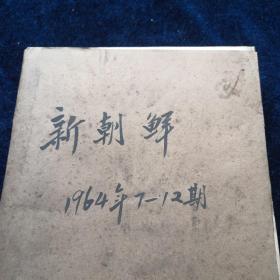 新朝鲜
1964年7-12期